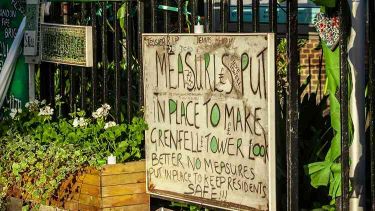 MEASURES PUT
IN PLACE TO MAKE
GRENFELL TOWER LOOK
BETTER NO MEASURES
PUT IN PLACE TO KEEP RESIDENTS
SAFE!!!